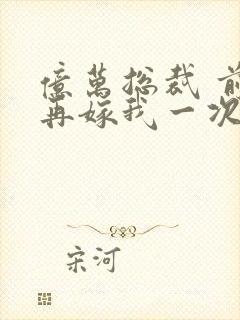 億萬總裁 前
再嫁我一次
宋河